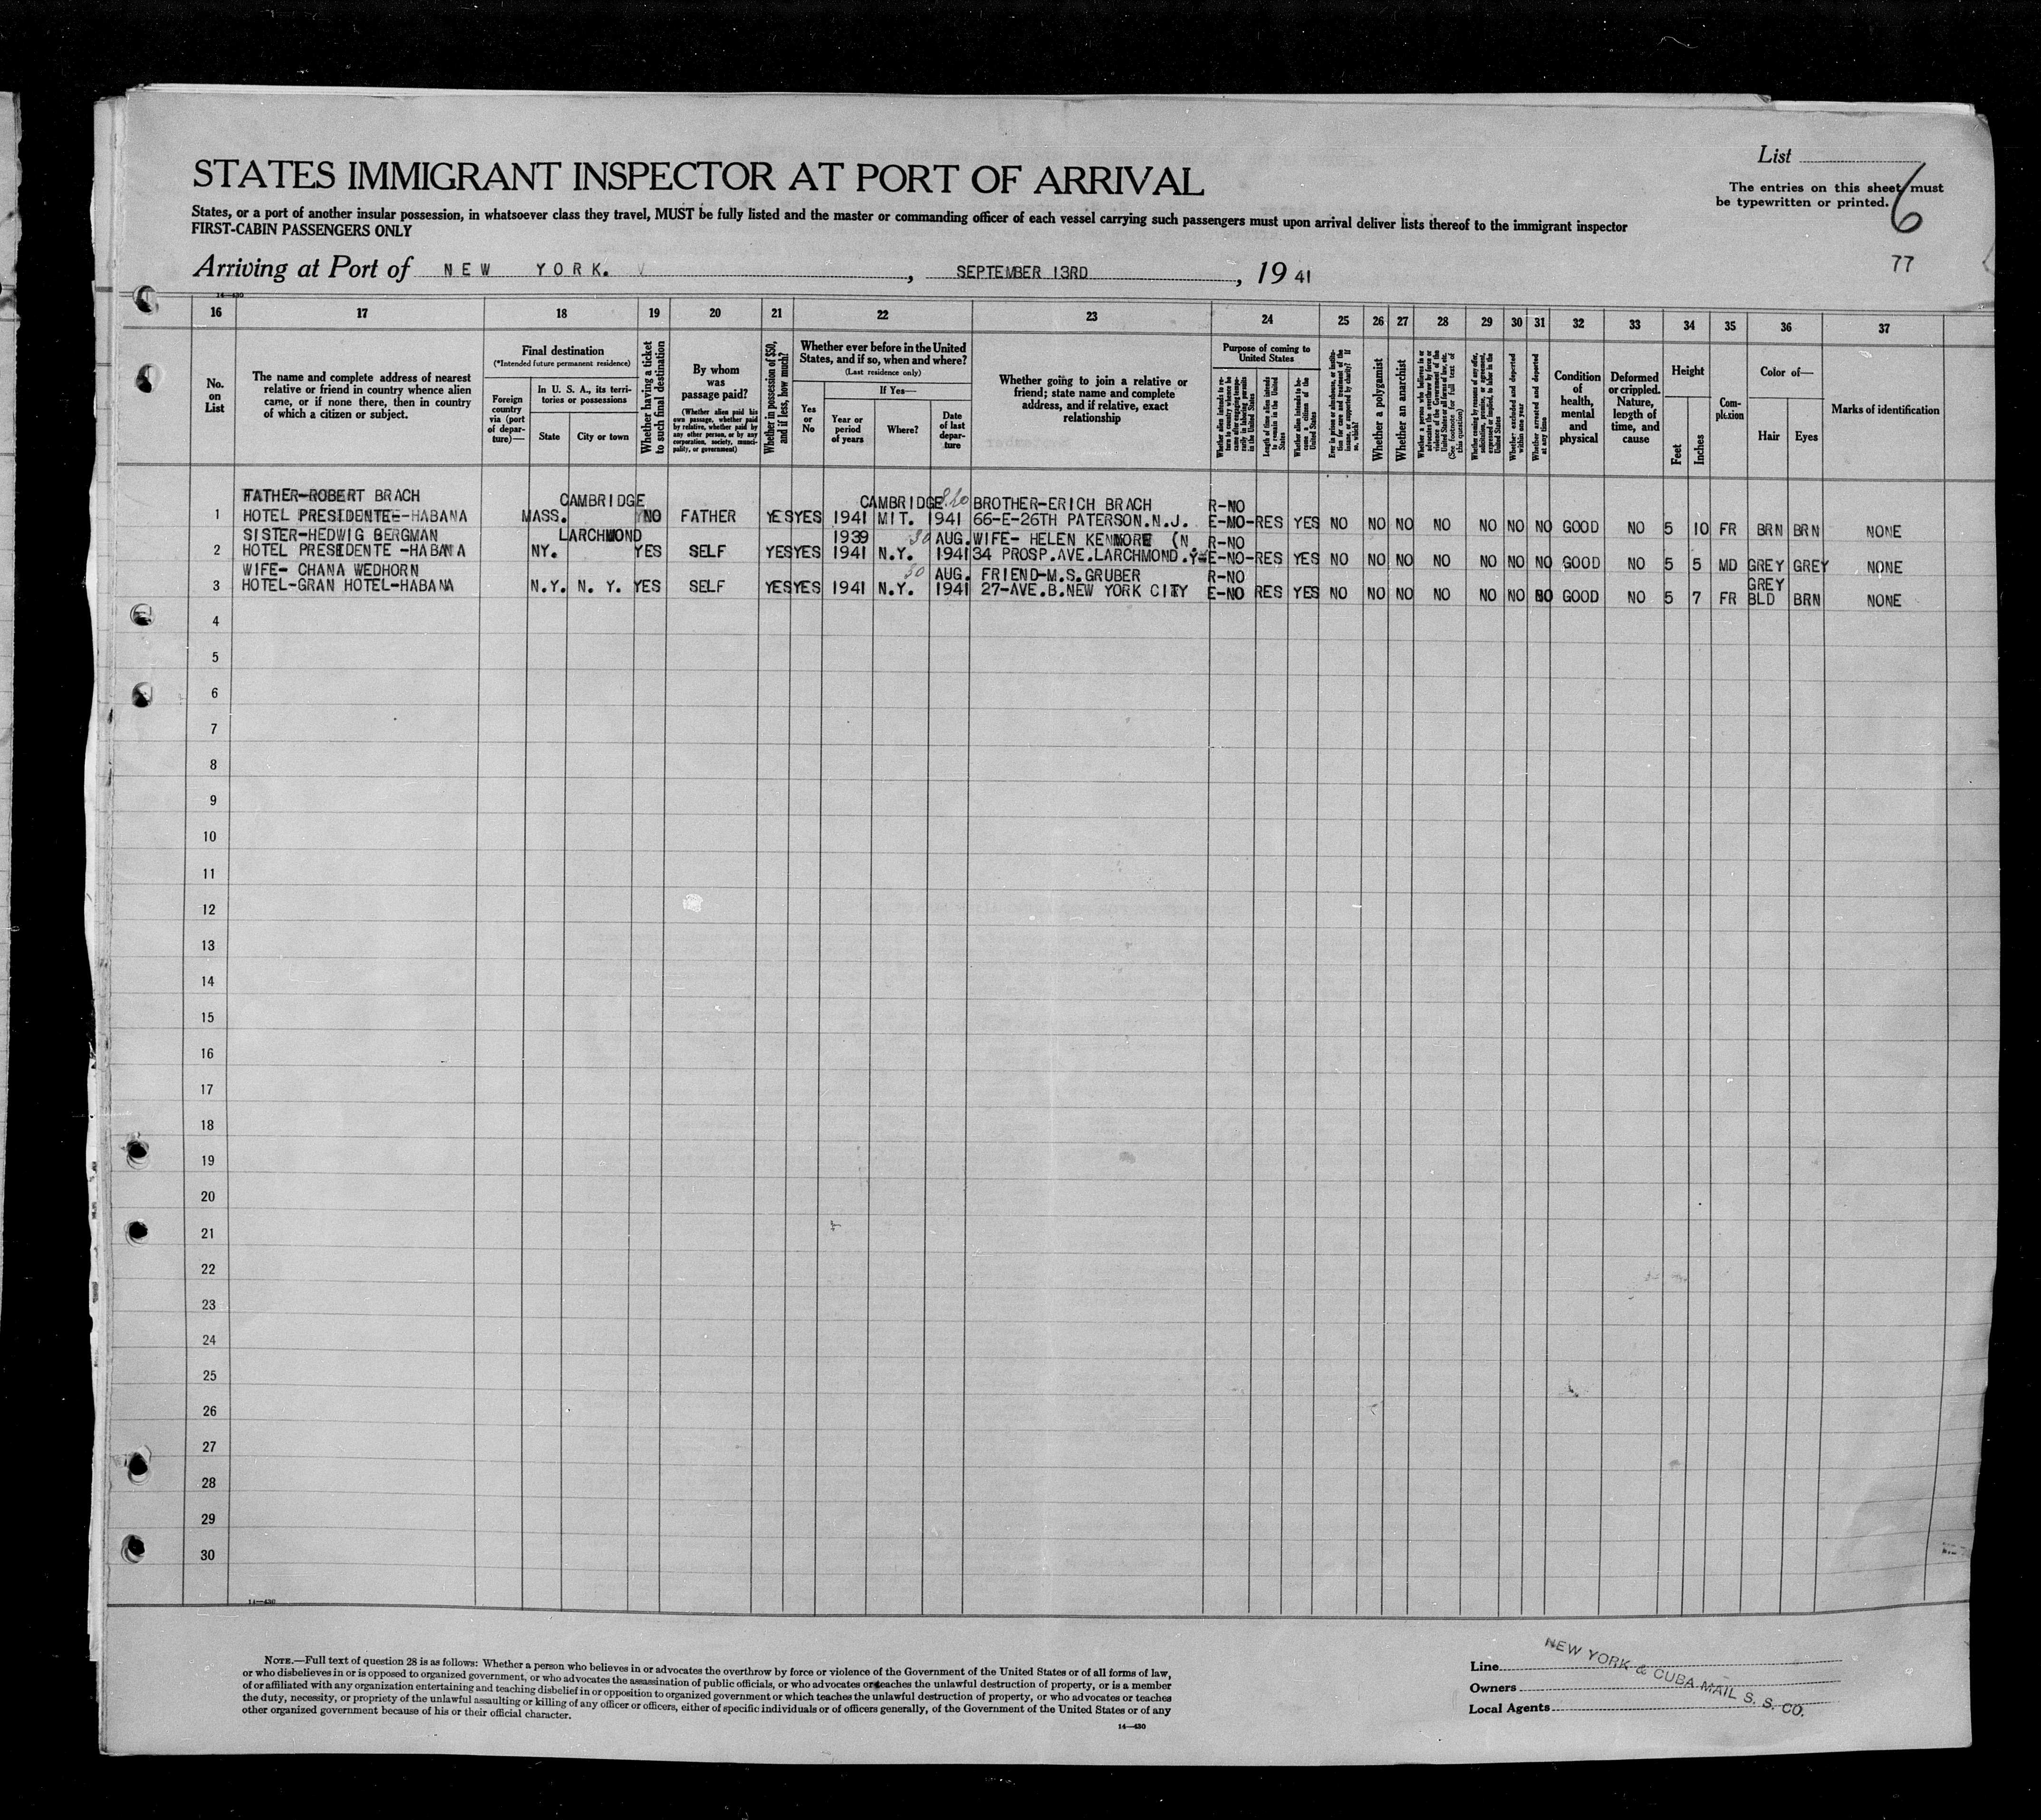 List
6
The entries on this sheet must
be typewritten or printed.
77
STATES IMMIGRANT INSPECTOR AT PORT OF ARRIVAL
States, or a port of another insular possession, in whatsoever class they travel, MUST be fully listed and the master or commanding officer of each vessel carrying such passengers must upon arrival deliver lists thereof to the immigrant inspector
FIRST-CABIN PASSENGERS ONLY
Arriving at Port of NEW YORK. , SEPTEMBER 13RD , 19 41
14—430
16 17 18 19 20 21 22 23 24 25 26 27 28 29 30 31 32 33 34 35 36 37
No. on List
The name and complete address of nearest relative or friend in country whence alien came, or if none there, then in country of which a citizen or subject.
Final destination
(*Intended future permanent residence)
Foreign country via (port of departure)—
In U. S. A., its territories or possessions
State
City or town
Whether having a ticket to such final destination
By whom was passage paid?
(Whether alien paid his own passage, whether paid by relative, whether paid by any other person, or by any corporation, society, municipality, or government)
Whether in possession of $50, and if less, how much?
Whether ever before in the United States, and if so, when and where?
(Last residence only)
Yes or No
If Yes—
Year or period of years
Where?
Date of last departure
Whether going to join a relative or friend; state name and complete address, and if relative, exact relationship
Purpose of coming to United States
Whether alien intends to return to country whence he came after engaging temporarily in laboring pursuits in the United States
Length of time alien intends to remain in the United States
Whether alien intends to become a citizen of the United States
Ever in prison or almshouse, or institution for care and treatment of the insane, or supported by charity? If so, which?
Whether a polygamist
Whether an anarchist
Whether a person who believes in or advocates the overthrow by force or violence of the Government of the United States or all forms of law, etc. (See footnote for full text of this question)
Whether coming by reason of any offer, solicitation, promise, or agreement, expressed or implied, to labor in the United States
Whether excluded and deported within one year
Whether arrested and deported at any time
Condition of health, mental and physical
Deformed or crippled. Nature, length of time, and cause
Height
Feet
Inches
Complexion
Color of—
Hair
Eyes
Marks of identification
FATHER-ROBERT BRACH CAMBRIDGE CAMBRIDGE BROTHER-ERICH BRACH R-NO
1 HOTEL PRESIDENTE-HABANA MASS. NO FATHER YES YES 1941 MIT. 1941 66-E-26TH PATERSON.N.J. E-MO-RES YES NO NO NO NO NO NO NO GOOD NO 5 10 FR BRN BRN NONE
SISTER-HEDWIG BERGMAN LARCHMOND 1939 30 AUG. WIFE- HELEN KENMORE (N R-NO
2 HOTEL PRESIDENTE -HABANA NY. YES SELF YES YES 1941 N.Y. 1941 34 PROSP.AVE.LARCHMOND.Y- E-NO-RES YES NO NO NO NO NO NO NO GOOD NO 5 5 MD GREY GREY NONE
WIFE- CHANA WEDHORN 30 AUG. FRIEND-M.S.GRUBER R-NO GREY
3 HOTEL-GRAN HOTEL-HABANA N.Y. N. Y. YES SELF YES YES 1941 N.Y. 1941 27-AVE.B.NEW YORK CITY E-NO RES YES NO NO NO NO NO NO NO GOOD NO 5 7 FR BLD BRN NONE
4
5
6
7
8
9
10
11
12
13
14
15
16
17
18
19
20
21
22
23
24
25
26
27
28
29
30
14—430
NOTE.—Full text of question 28 is as follows: Whether a person who believes in or advocates the overthrow by force or violence of the Government of the United States or of all forms of law,
or who disbelieves in or is opposed to organized government, or who advocates the assassination of public officials, or who advocates or teaches the unlawful destruction of property, or is a member
of or affiliated with any organization entertaining and teaching disbelief in or opposition to organized government or which teaches the unlawful destruction of property, or who advocates or teaches
the duty, necessity, or propriety of the unlawful assaulting or killing of any officer or officers, either of specific individuals or of officers generally, of the Government of the United States or of any
other organized government because of his or their official character.
14—430
Line
Owners
Local Agents
NEW YORK & CUBA MAIL S. S. CO.